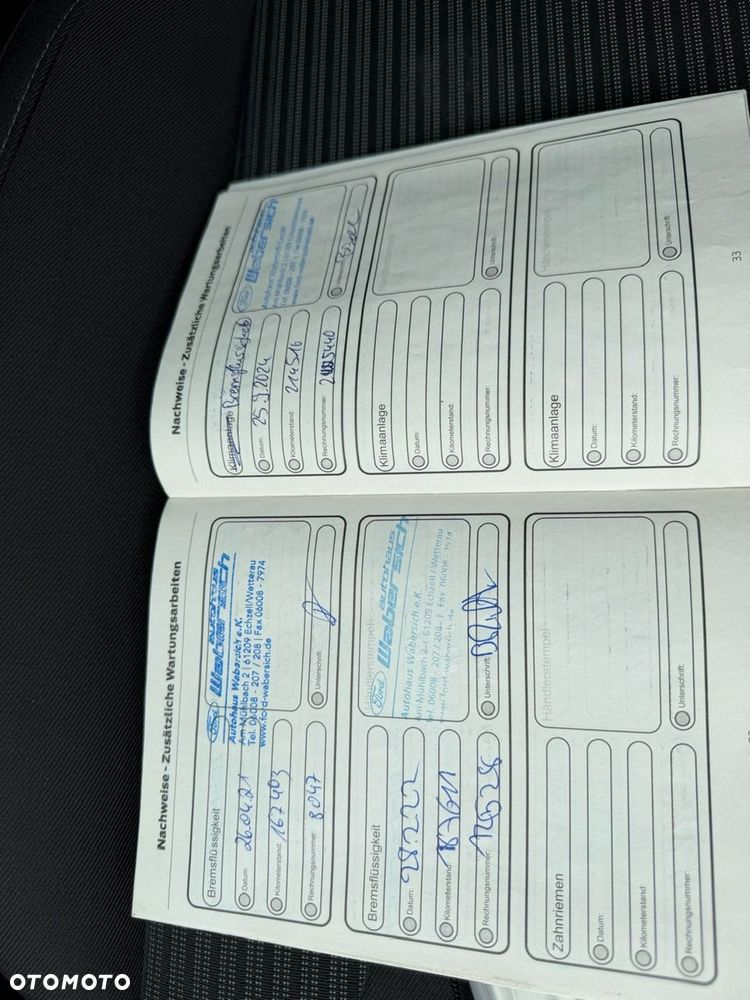 Nachweise - Zusätzliche Wartungsarbeiten
Bremsflüssigkeit
Datum: 26.04.21
Kilometerstand: 167403
Rechnungsnummer: 8047
Ford autohaus
Wabersich
Autohaus Wabersich e.K.
Am Mühlbach 2 | 61209 Echzell/Wetterau
Tel. 06008 - 207 / 208 | Fax 06008 - 7974
www.ford-wabersich.de
Unterschrift:
Bremsflüssigkeit
Datum:
Kilometerstand:
Rechnungsnummer:
Händlerstempel
Ford autohaus
Wabersich
Autohaus Wabersich e.K.
Am Mühlbach 2 | 61209 Echzell/Wetterau
Tel. 06008 - 207 / 208 | Fax 06008 - 7974
www.ford-wabersich.de
Unterschrift:
Zahnriemen
Datum:
Kilometerstand:
Rechnungsnummer:
Händlerstempel
Unterschrift:
Nachweise - Zusätzliche Wartungsarbeiten
Klimaanlage
Datum: 25.9.2024
Kilometerstand: 214516
Rechnungsnummer:
Ford
Wabersich
Klimaanlage
Datum:
Kilometerstand:
Rechnungsnummer:
Unterschrift:
Klimaanlage
Datum:
Kilometerstand:
Rechnungsnummer:
Unterschrift:
33
OTOMOTO